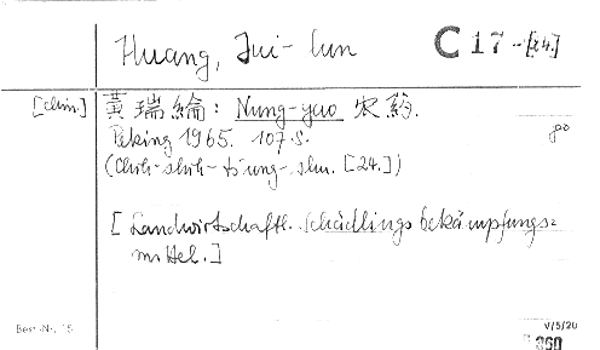 Huang, Jui-lun C 17-[24.]
[chin.] 黃瑞綸: Nung-yao 农葯.
Peking 1965. 107 S. 8°
(Chih-shih-ts'ung-shu. [24.])
[Landwirtschaftl. Schädlingsbekämpfungs=
mittel.]
Best.-Nr. 15 V/5/20
860